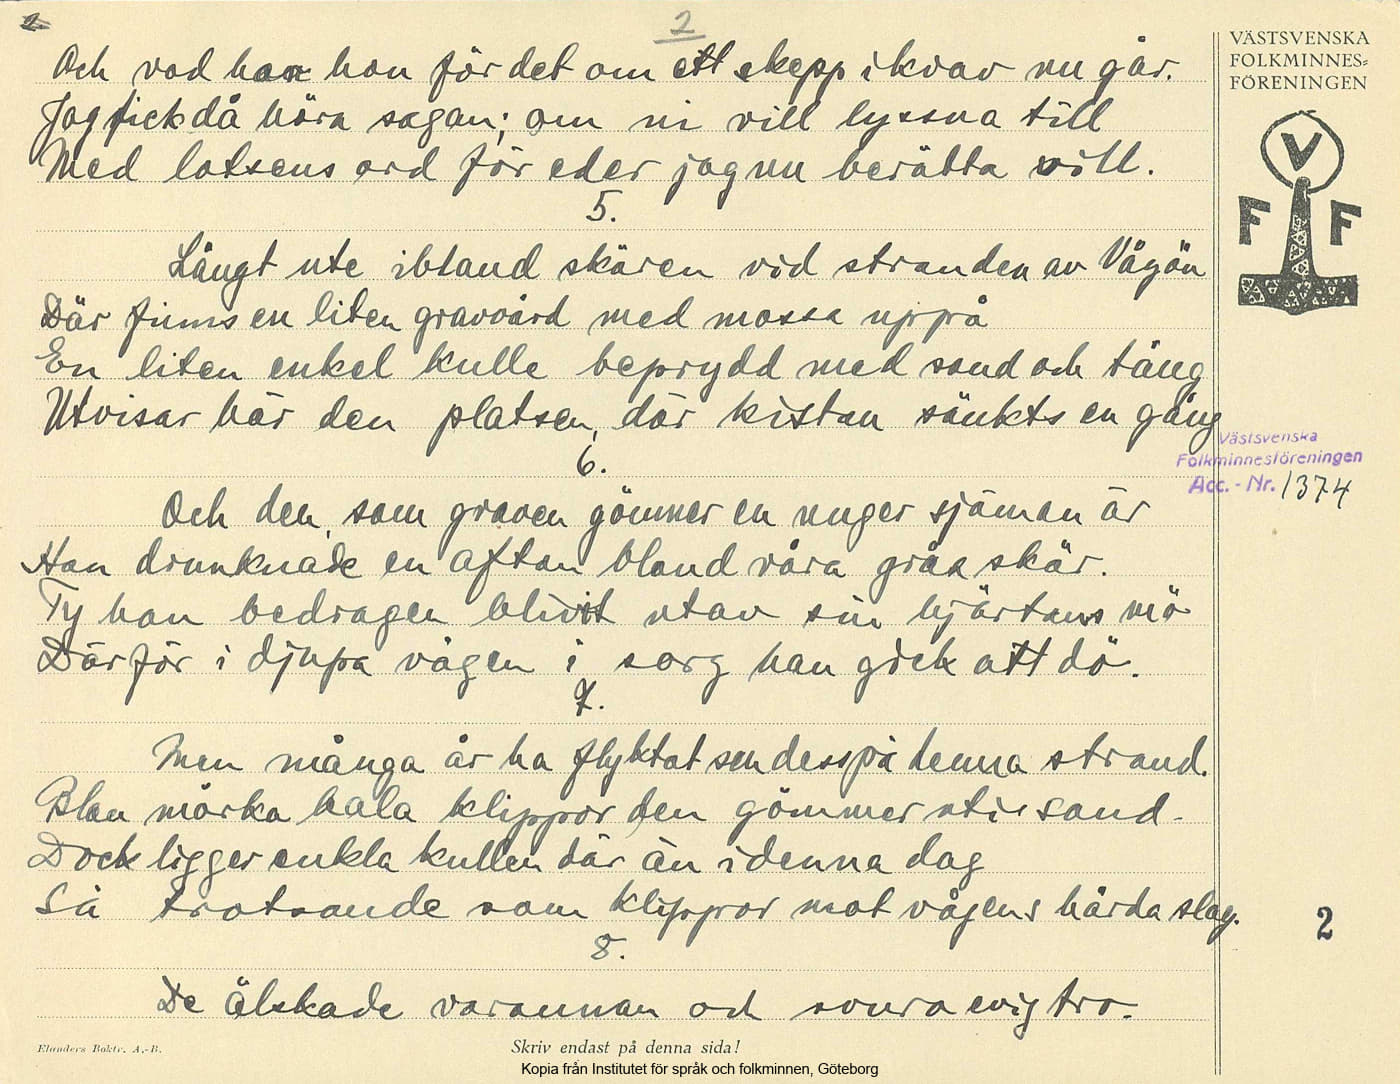 2
2
Och vad han hon för det om ett skepp i kvav nu går.
Jag fick då höra sagan; om ni vill lyssna till
Med lotsens ord för eder jag nu berätta vill.
5.
Långt ute ibland skären vid stranden av Vågön
Där finns en liten gravvård med mossa uppå
En liten enkel kulle beprydd med sand och tång
Utvisar här den platsen, där kistan sänkts en gång
6.
Och den, som graven gömmer en unger sjöman är
Han drunknade en afton bland våra gråa skär.
Ty han bedragen blivit utav sin hjärtans mö
Därför i djupa vågen i sorg han gick att dö.
7.
Men många år ha flyktat sen dess på denna strand.
Blan mörka hala klippor den gömmer uti sand
Dock ligger enkla kullen där än i denna dag
Så trotsande som klippor mot vågens hårda slag.
8.
De älskade varannan och svura evig tro.
VÄSTSVENSKA
FOLKMINNES=
FÖRENINGEN
V
F F
Västsvenska
Folkminnesföreningen
Acc. - Nr. 1374
2
Elanders Boktr. A.-B.
Skriv endast på denna sida!
Kopia från Institutet för språk och folkminnen, Göteborg